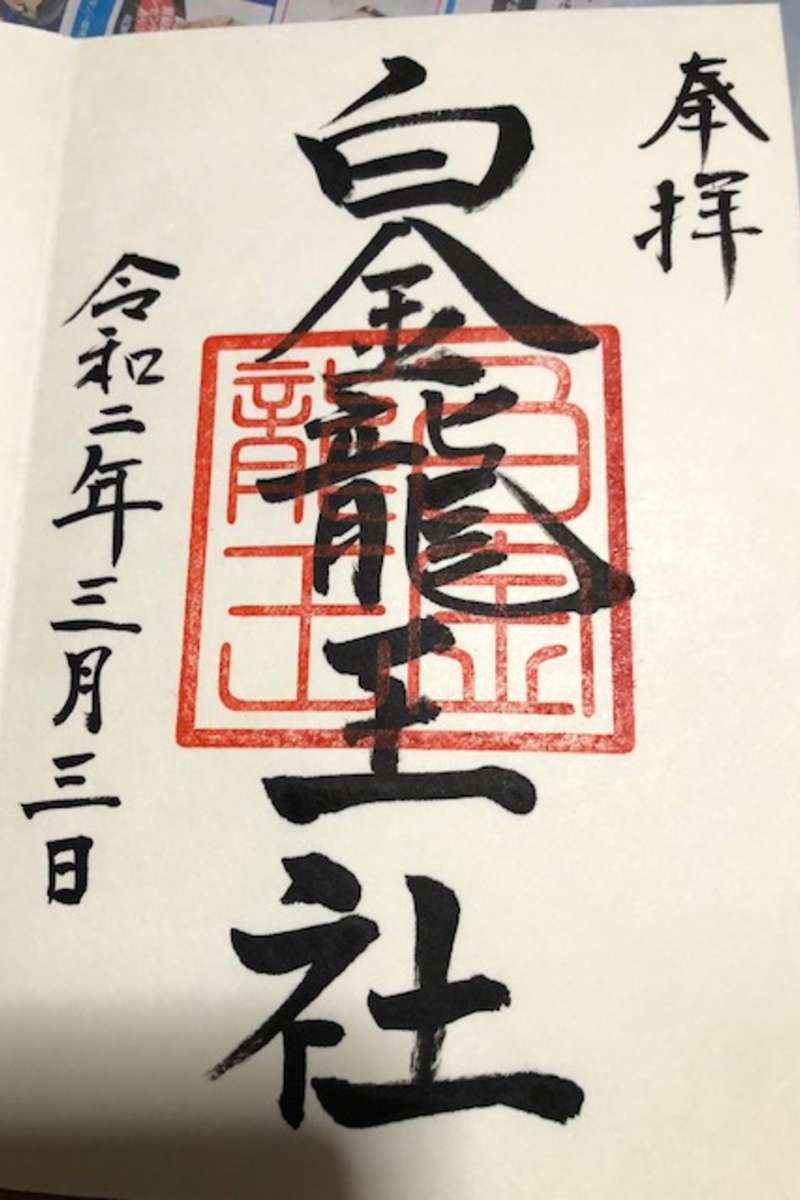 奉拝
白金龍王社
白金
龍王
令和二年三月三日